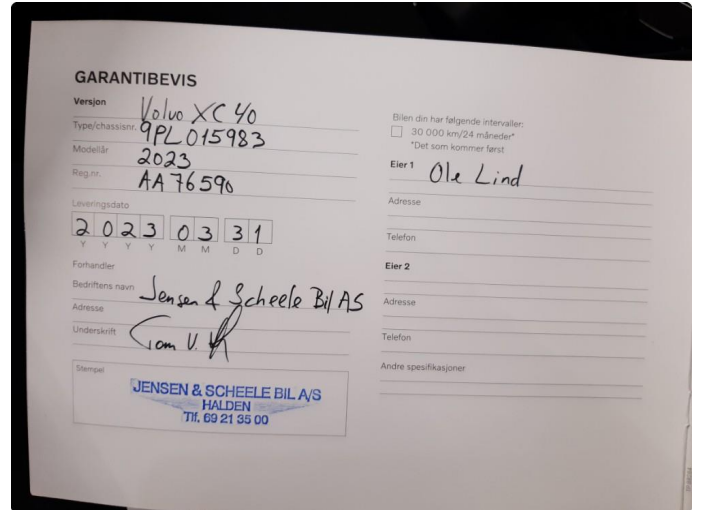 GARANTIBEVIS
Versjon Volvo XC 40
Type/chassisnr. 9PL015983
Modellår 2023
Reg.nr. AA 76590
Leveringsdato
2 0 2 3 0 3 3 1
Y Y Y Y M M D D
Forhandler
Bedriftens navn Jensen & Scheele Bil AS
Adresse
Underskrift Tom V.
Stempel
JENSEN & SCHEELE BIL A/S
HALDEN
Tlf. 69 21 35 00
Bilen din har følgende intervaller:
30 000 km/24 måneder*
*Det som kommer først
Eier 1 Ole Lind
Adresse
Telefon
Eier 2
Adresse
Telefon
Andre spesifikasjoner